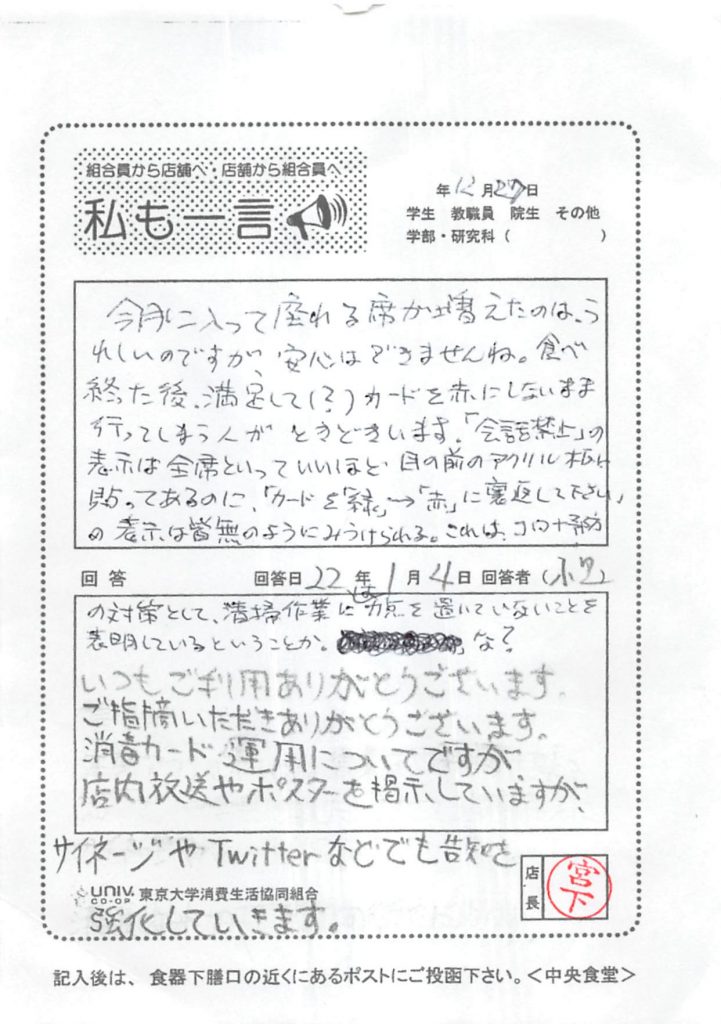 組合員から店舗へ・店舗から組合員へ
私も一言
年 12月27日
学生 教職員 院生 その他
学部・研究科（　　　）
今月に入って座れる席が増えたのは、う
れしいのですが、安心はできませんね。食べ
終った後、満足して(?)カードを赤にしないまま
行ってしまう人がときどきいます。「会話禁止」の
表示は全席といっていいほど、目の前のアクリル板に
貼ってあるのに、「カードを「緑」→「赤」に裏返して下さい」
の表示は皆無のようにみうけられる。これは、コロナ予防
回答 回答日 22年 1月 4日 回答者
の対策として、清掃作業には力点を置いていないことを
表明しているということか。な?
いつもご利用ありがとうございます。
ご指摘いただきありがとうございます。
消毒カード運用についてですが
店内放送やポスターを掲示していますが、
サイネージやTwitterなどでも告知を
強化していきます。
UNIV. CO-OP 東京大学消費生活協同組合
店長 宮下
記入後は、食器下膳口の近くにあるポストにご投函下さい。＜中央食堂＞